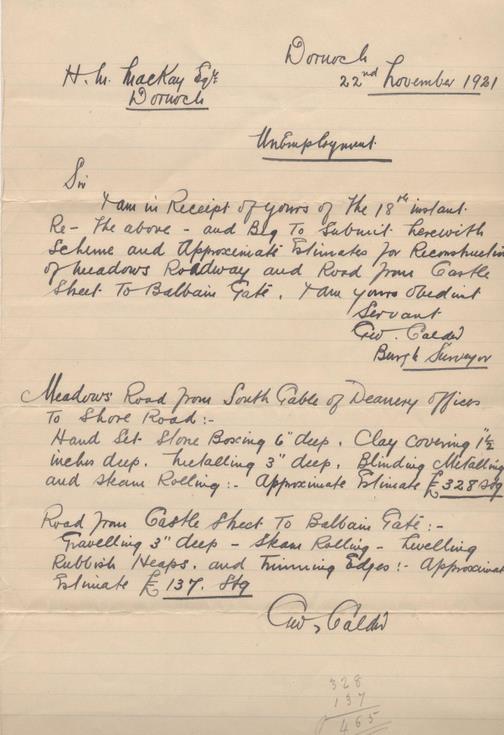 Dornoch
22nd November 1921
H. M. MacKay Esqr
Dornoch
UnEmployment
Sir
I am in Receipt of yours of the 18th instant
Re - the above - and Beg To Submit herewith
Scheme and Approximate Estimates for Reconstruction
of Meadows Roadway and Road from Castle
Street To Balbain Gate. I am yours obedient
Servant
Geo. Calder
Burgh Surveyor
Meadows Road from South Gable of Deanery offices
To Shore Road :-
Hand Set Stone Boxing 6" deep. Clay covering 1½
inches deep. Metalling 3" deep. Blinding Metalling
and Steam Rolling :- Approximate Estimate £328 Stg
Road from Castle Street To Balbain Gate :-
Gravelling 3" deep - Steam Rolling - Levelling
Rubbish Heaps. and Trimming Edges :- Approximate
Estimate £137. Stg
Geo, Calder
328
137
465